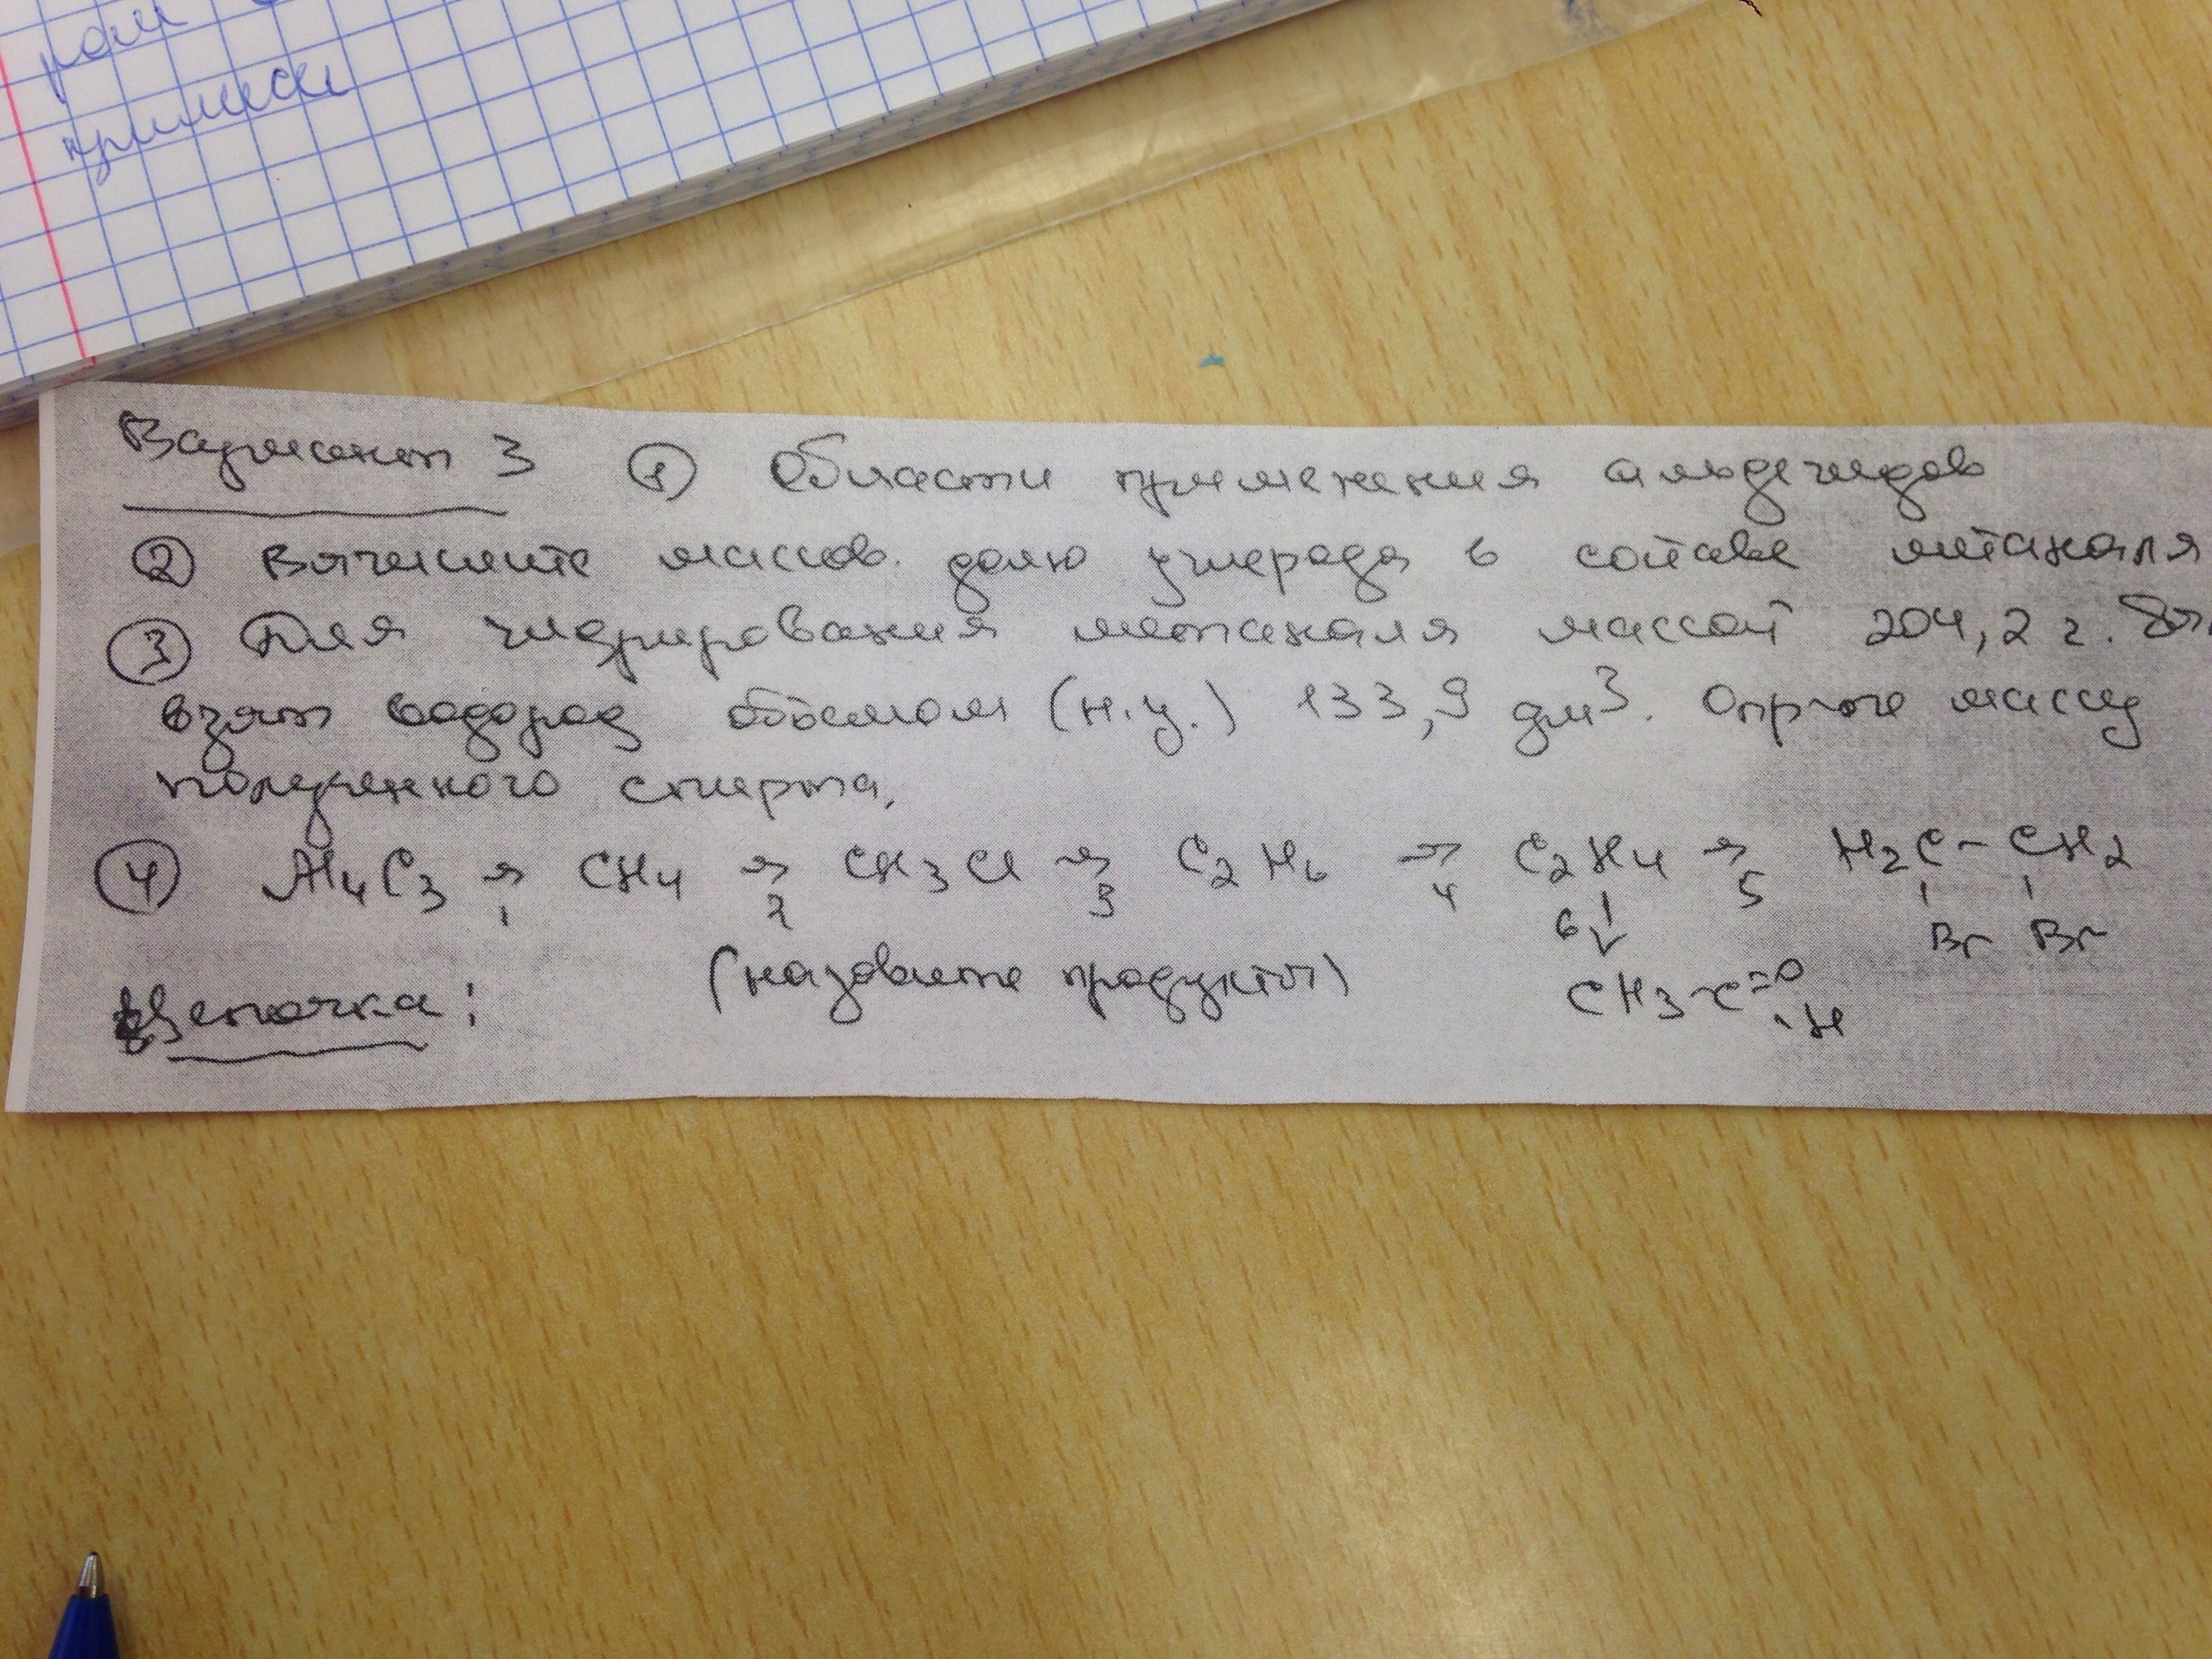 рам
примеси
Вариант 3 ① Области применения альдегидов
② Вычислите массов. долю углерода в составе метаналя
③ Для гидрирования метаналя массой 204,2 г. был
взят водород объемом (н.у.) 133,9 дм³. Опр-те массу
полученного спирта.
④ Al4C3 →1 CH4 →2 CH3Cl →3 C2H6 →4 C2H4 →5 H2C-CH2
6↓ Br Br
Цепочка: (назовите продукты) CH3-C=O
-H